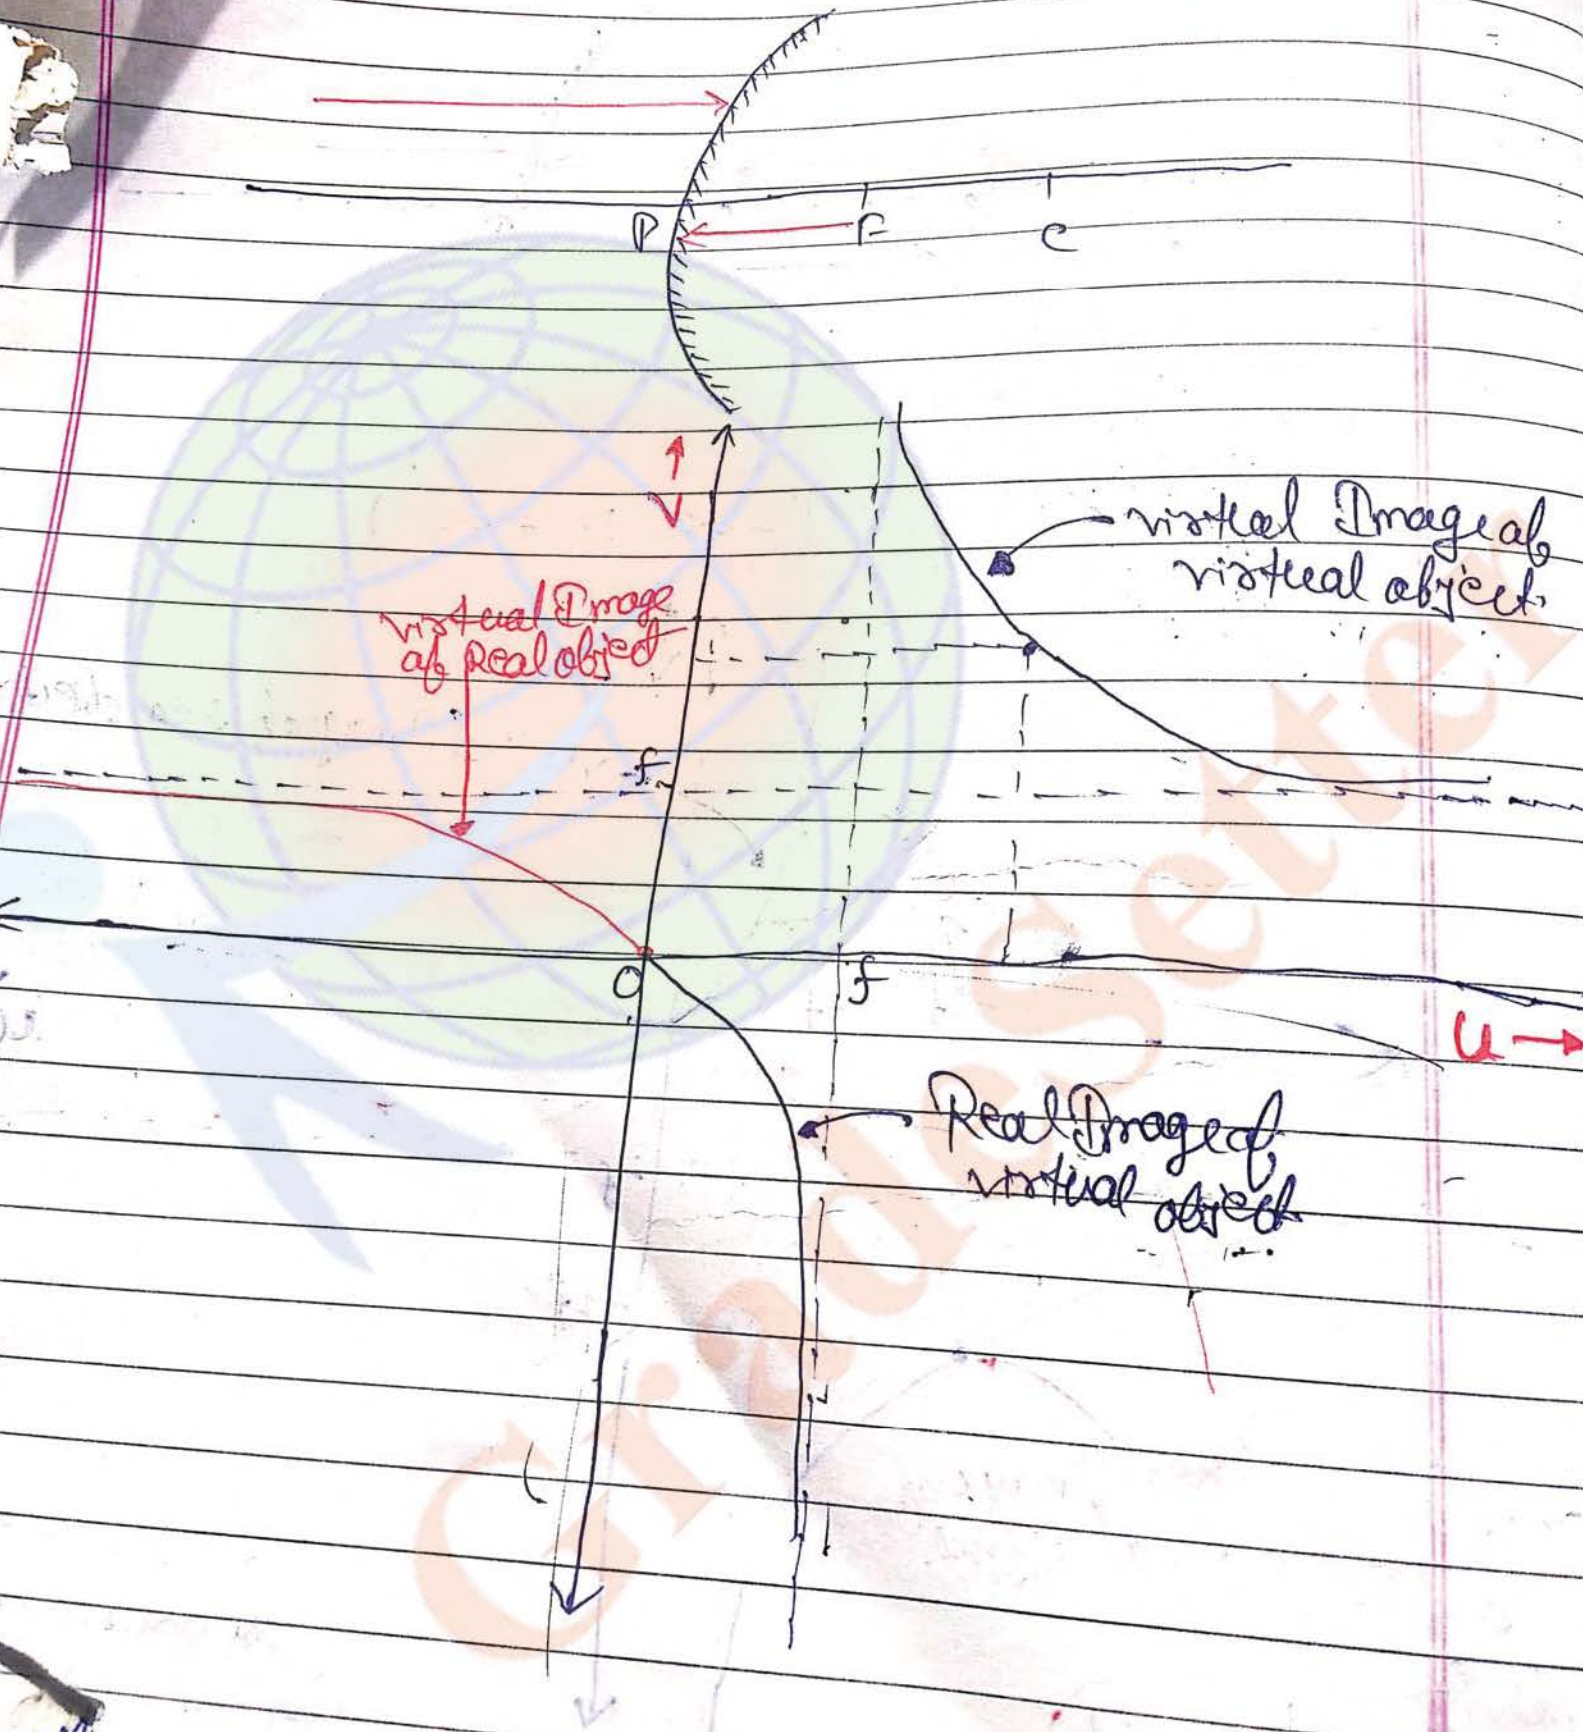 P F C
V
virtual Image of
virtual object.
virtual Image
of Real object
f
O f
u
Real Image of
virtual object
GradeSetter